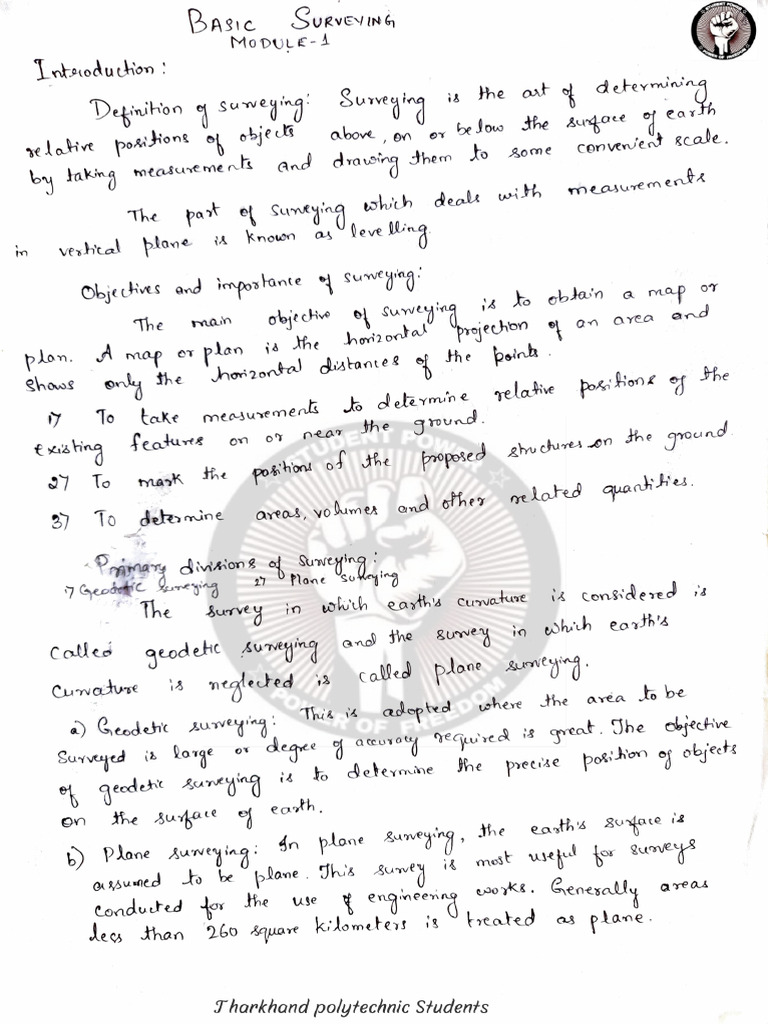 BASIC SURVEYING
MODULE-1
STUDENT POWER
POWER OF FREEDOM
Introduction:
Definition of surveying: Surveying is the art of determining
relative positions of objects above, on or below the surface of earth
by taking measurements and drawing them to some convenient scale.
The part of surveying which deals with measurements
in vertical plane is known as levelling.
Objectives and importance of surveying:
The main objective of surveying is to obtain a map or
plan. A map or plan is the horizontal projection of an area and
shows only the horizontal distances of the points.
1> To take measurements to determine relative positions of the
existing features on or near the ground.
2> To mark the positions of the proposed structures on the ground.
3> To determine areas, volumes and other related quantities.
STUDENT POWER
Primary divisions of surveying:
1> Geodetic surveying 2> Plane surveying
The survey in which earth's curvature is considered is
called geodetic surveying and the survey in which earth's
curvature is neglected is called plane surveying.
POWER OF FREEDOM
a) Geodetic surveying: This is adopted where the area to be
surveyed is large or degree of accuracy required is great. The objective
of geodetic surveying is to determine the precise position of objects
on the surface of earth.
b) Plane surveying: In plane surveying, the earth's surface is
assumed to be plane. This survey is most useful for surveys
conducted for the use of engineering works. Generally areas
less than 260 square kilometers is treated as plane.
Jharkhand polytechnic Students